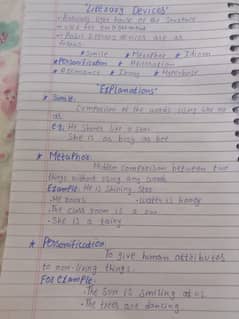 "Literary Devices"
- Basically
- used for
- Basic literary devices are as
follows
* Simile * Metaphor * Idiom
* Personification * Alliteration
* Assonance * Irony * Hyperbole
"Explanations"
* Simile:
Comparison of the words using like or
as.
e.g: He shines like a star.
She is as busy as bee
* Metaphor:
Hidden comparison between two
things without using any words.
Example: He is shining star
- He roars - water is honey
- The class room is a zoo
- She is a fairy
* Personification:
To give human attributes
to non-living things.
For example:
- The sun is smiling at us.
- The trees are dancing